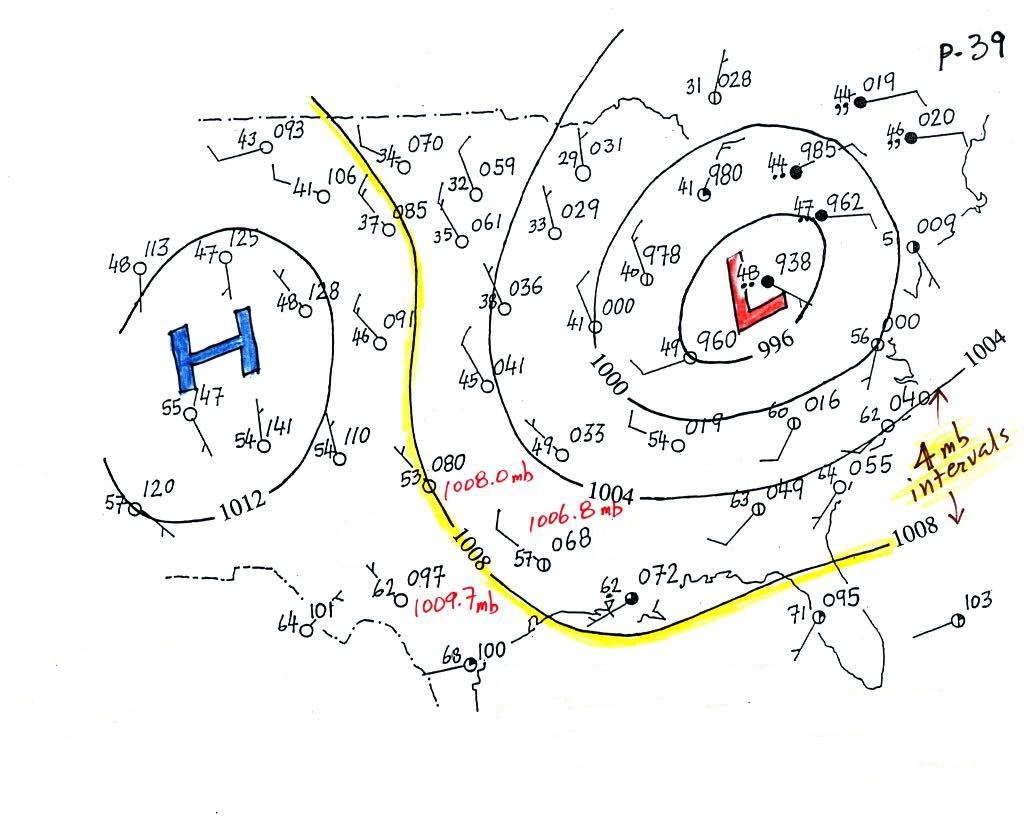 P-39
31 028
44 019
46 020
43 093
34 070
29 031
44 985
41 106
32 059
41 980
47 962
37 085
35 061
33 029
5 009
48 113
47 125
40 978
48 938
48 128
38 036
41 000
46 091
49 960
996
56 000
H
L
1004
1000
55 147
45 041
54 141
54 110
49 033
54 019
60 016
62 040
4 mb
intervals
53 080
1008.0 mb
1004
64 055
57 120
1012
1006.8 mb
63 049
1008
1008
57 068
62 097
1009.7 mb
62 072
64 101
71 095
103
68 100